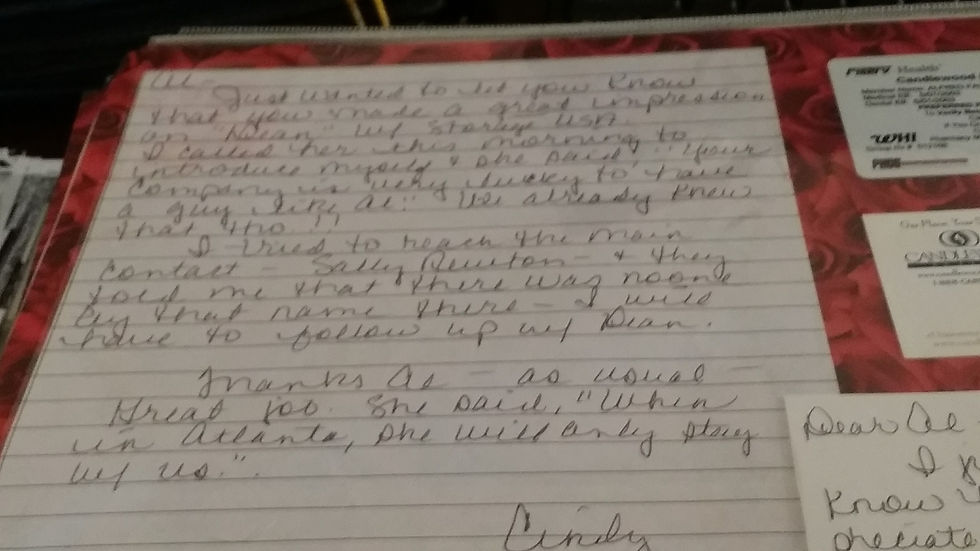 Al -
Just wanted to let you know
that you made a great impression
on "Dean" w/ Storky USA.
I called her this morning to
introduce myself & she said, "Your
company is very lucky to have
a guy like Al." We already knew
that tho!!
I tried to reach the main
contact - Sally Newton - & they
told me that there was noone
by that name there - I will
have to follow up w/ Dean.
Thanks Al - as usual -
Great job. She said, "When
in Atlanta, she will only stay
w/ us.".
Cindy
Health
Candlewood
WHI
CANDLEW
Dear Al
I
Know
preciate